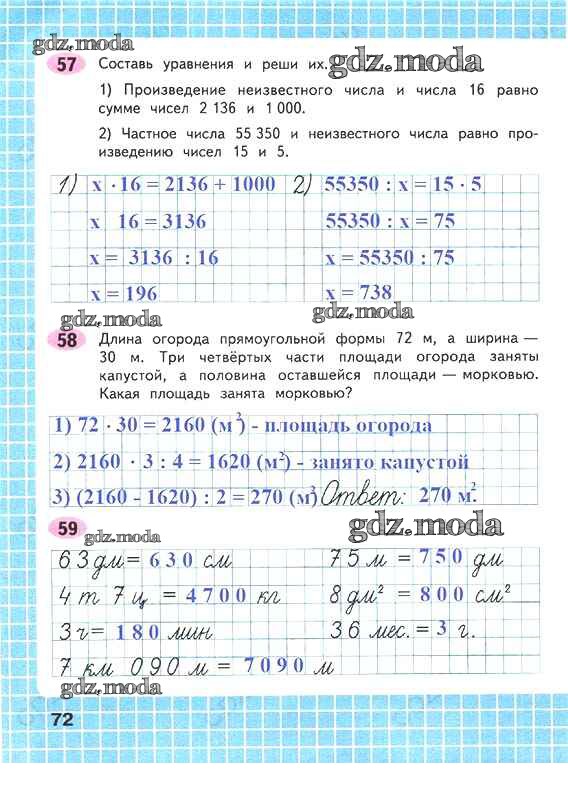 gdz.moda
57 Составь уравнения и реши их. gdz.moda
1) Произведение неизвестного числа и числа 16 равно
сумме чисел 2 136 и 1 000.
2) Частное числа 55 350 и неизвестного числа равно про-
изведению чисел 15 и 5.
1) х · 16 = 2136 + 1000 2) 55350 : х = 15 · 5
х 16 = 3136 55350 : х = 75
х = 3136 : 16 х = 55350 : 75
х = 196 х = 738
gdz.moda gdz.moda
58 Длина огорода прямоугольной формы 72 м, а ширина —
30 м. Три четвёртых части площади огорода заняты
капустой, а половина оставшейся площади — морковью.
Какая площадь занята морковью?
1) 72 · 30 = 2160 (м²) - площадь огорода
2) 2160 · 3 : 4 = 1620 (м²) - занято капустой
3) (2160 - 1620) : 2 = 270 (м² Ответ: 270 м².
59 gdz.moda gdz.moda
63 дм = 630 см 75 м = 750 дм
4 т 7 ц = 4700 кг 8 дм² = 800 см²
3 ч = 180 мин 36 мес. = 3 г.
7 км 090 м = 7090 м
gdz.moda
72